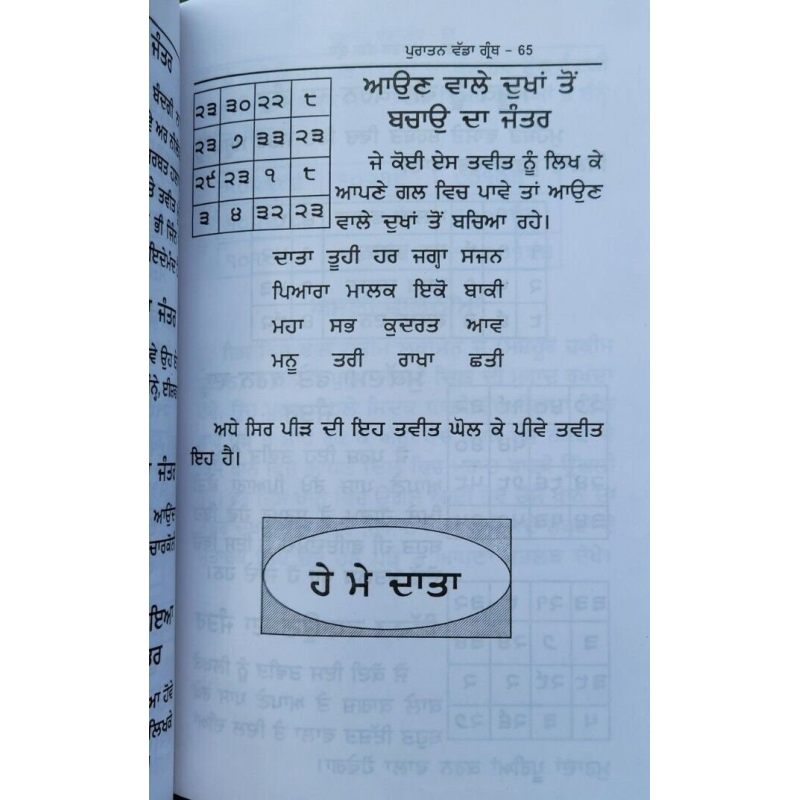 ਪੁਰਾਤਨ ਵੱਡਾ ਗ੍ਰੰਥ - 65
੨੩ ੩੦ ੨੨ ੮
੨੩ ੭ ੩੩ ੨੩
੨੯ ੨੩ ੧ ੮
੩ ੪ ੩੨ ੨੩
ਆਉਣ ਵਾਲੇ ਦੁਖਾਂ ਤੋਂ
ਬਚਾਉ ਦਾ ਜੰਤਰ
ਜੇ ਕੋਈ ਏਸ ਤਵੀਤ ਨੂੰ ਲਿਖ ਕੇ
ਆਪਣੇ ਗਲ ਵਿਚ ਪਾਵੇ ਤਾਂ ਆਉਣ
ਵਾਲੇ ਦੁਖਾਂ ਤੋਂ ਬਚਿਆ ਰਹੇ।
ਦਾਤਾ ਤੂਹੀ ਹਰ ਜਗ੍ਹਾ ਸਜਨ
ਪਿਆਰਾ ਮਾਲਕ ਇਕੋ ਬਾਕੀ
ਮਹਾ ਸਭ ਕੁਦਰਤ ਆਵ
ਮਨੂ ਤਰੀ ਰਾਖਾ ਛਤੀ
ਅਧੇ ਸਿਰ ਪੀੜ ਦੀ ਇਹ ਤਵੀਤ ਘੋਲ ਕੇ ਪੀਵੇ ਤਵੀਤ
ਇਹ ਹੈ।
ਹੇ ਮੇ ਦਾਤਾ